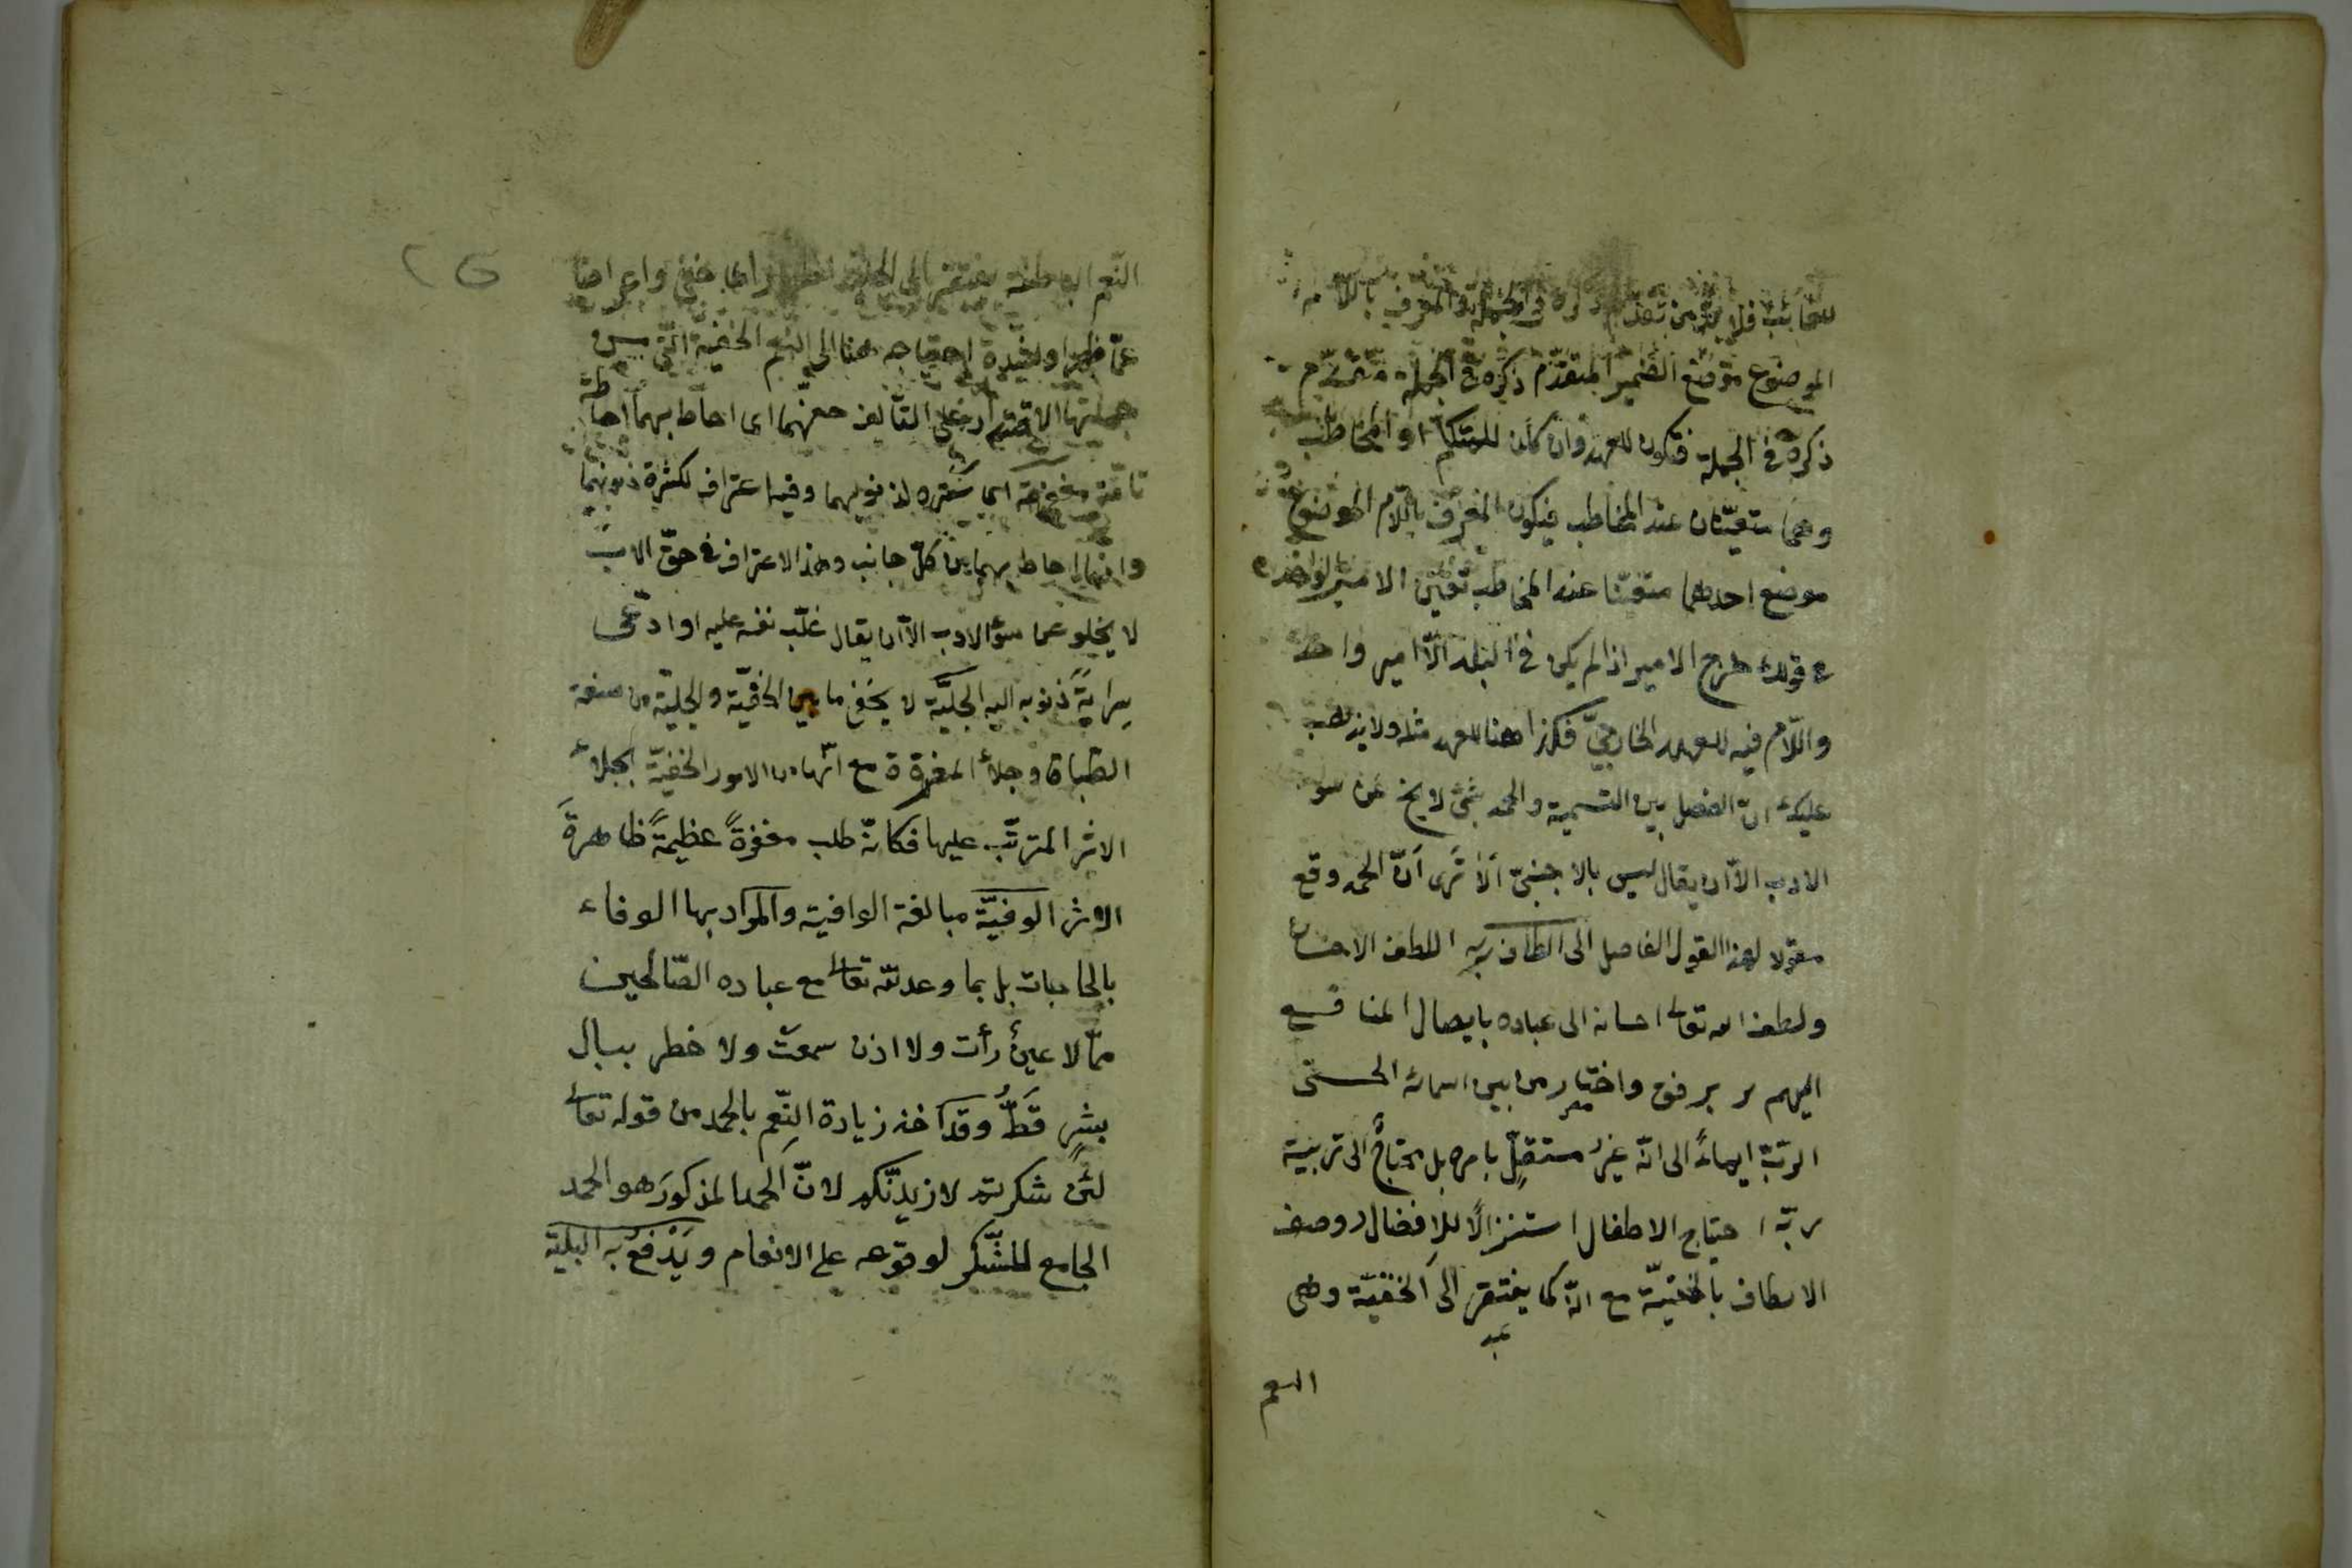 للغائب فلا بد من تقدم ذكره في الجملة والمعرف باللام
الموضوع موضع الضمير المتقدّم ذكره في الجملة متقدّم
ذكره في الجملة فتكون للعهد وان كان للمتكلم او المخاطب
وهما متعيّنان عند المخاطب فيكون المعرف باللّام الموضوع
موضع احدهما متعيّنا عند المخاطب تعيّن الامير الواحد
في قولك خرج الامير اذا لم يكن في البلد الّا امير واحد
واللّام فيه للعهد الخارجيّ فكذا هنا للعهد مثله ولا يذهب
عليك انّ الفصل بين التسمية والحمد بشئ لا يخ عن سوء
الادب الّا ان يقال ليس بالاجنبيّ ألا تَرى أنّ الحمد وقع
مقولا لهذا القول الفاصل الى الطاف ربه اللطف الاحسان
ولطف الله تعالى احسانه الى عباده بايصال المنافع
اليهم برفق واختير من بين اسمائه الحسنى
الربّ ايماءً الى انّه غيرُ مستقِلّ بامره بل محتاجٌ الى تربية
ربّه احتياج الاطفال استنزالًا للافضال ووصف
الالطاف بالخفيّة مع انّه كما يفتقر الى الخفيّة وهى
عبد
النعم
النّعم الباطنة يفتقر الى الجلية
عمّا ظهر او لشدة احتياجه هنا الى النعم الخفية التى من
جملتها الاقتدار على التأليف حفّهما اى احاط بهما احاطة
تامّة مغفرته اى سَتره لذنوبهما وفيه اعتراف لكثرة ذنوبهما
وانها احاط بهما من كلّ جانب وهذا الاعتراف في حقّ الاب
لا يخلو عن سوء الادب الّا ان يقال غلّب نفسه عليه او ادّعى
سِرايةَ ذنوبه اليه الجليّة لا يخفى ما بين الخفيّة والجليّة من صنعة
الطباق وجلاء المغفرة مع انّها من الامور الخفيّة بجلاء
الاثر المترتّب عليها فكانّه طلب مغفرةً عظيمةً ظاهرةَ
الاثر الوفيّة مبالغة الوافية والمراد بها الوفاء
بالحاجات بل بما وعد الله تعالى مع عباده الصّالحين
ممّا لا عينٌ رأت ولا اذن سمعت ولا خطر ببال
بشرٍ قَطُّ وقد اخذ زيادة النِّعم بالحمد من قوله تعالى
لئن شكرتم لازيدنّكم لانّ الحمد المذكورَ هو الحمد
الجامع للشّكر لوقوعه على الانعام ويَدْفعُ به البليّة